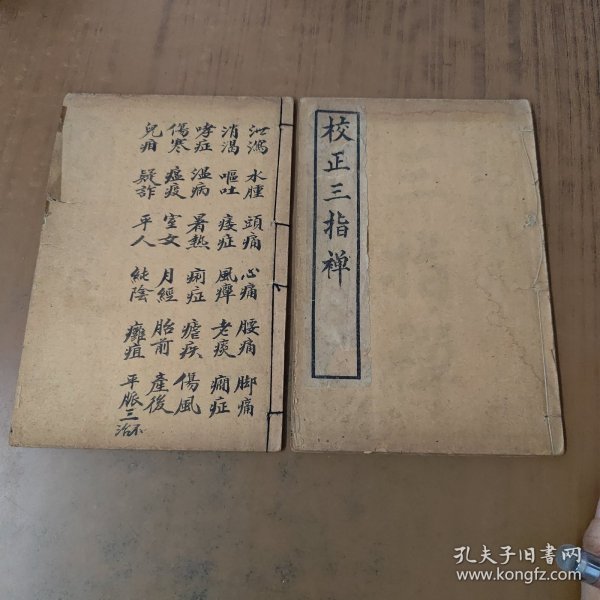 校正三指禅
泄瀉 水腫 頭痛 心痛 腰痛 脚痛
消渴 嘔吐 痿症 風痺 老痰 癇症
哮症 溫病 暑熱 痢症 瘧疾 傷風
傷寒 瘟疫 室女 月經 胎前 產後
兒疳 疑詐 平人 純陰 癰疽 平脈三不治
孔夫子旧书网
www.kongfz.com